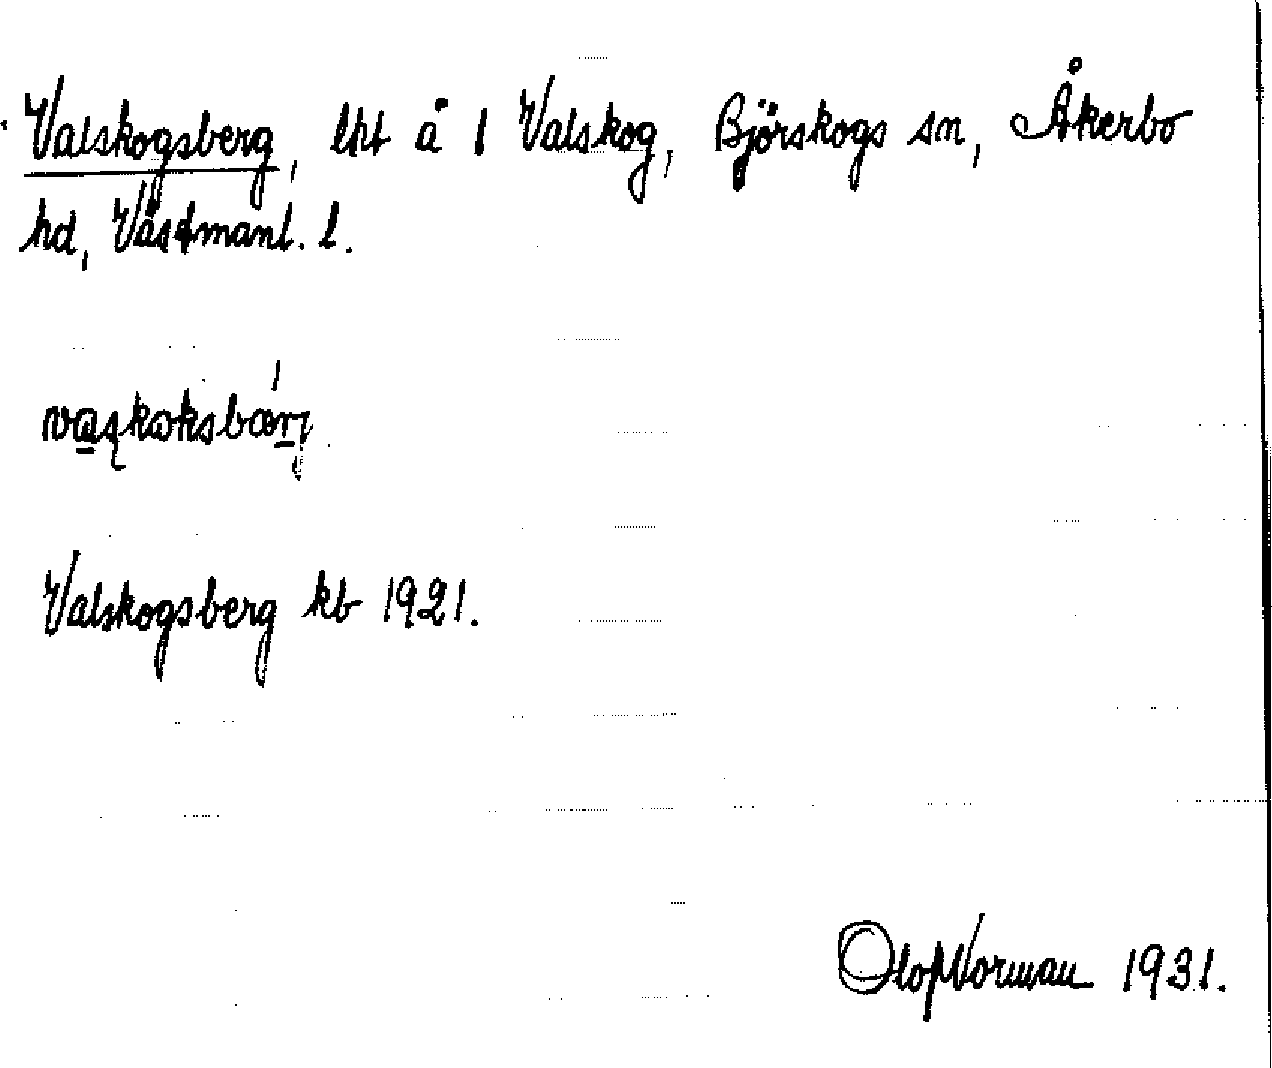 Valskogsberg, lht å 1 Valskog, Björskogs sn, Åkerbo
hd, Västmanl. l.
vaʂkoksbærj
Valskogsberg kb 1921.
Olof Norman 1931.